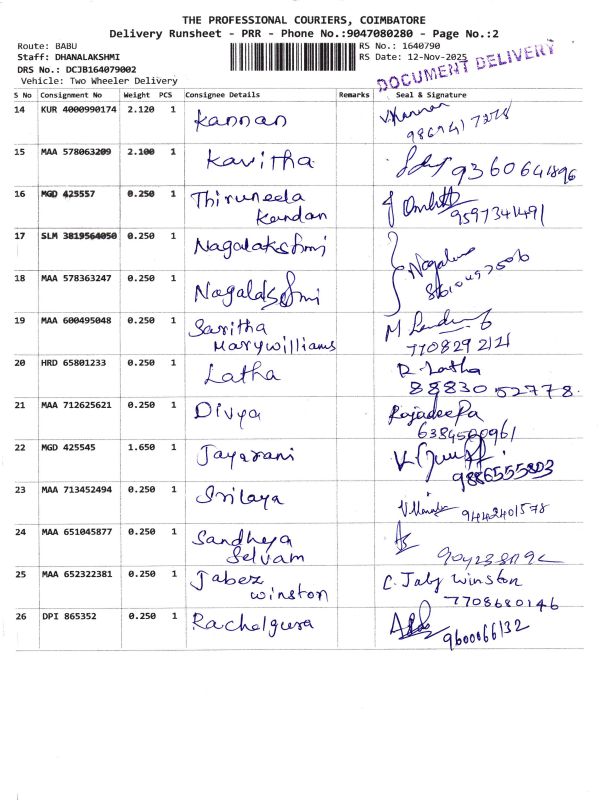 THE PROFESSIONAL COURIERS, COIMBATORE
Delivery Runsheet - PRR - Phone No.:9047080280 - Page No.:2
Route: BABU
RS No.: 1640790
Staff: DHANALAKSHMI
RS Date: 12-Nov-2025
DRS No.: DCJB164079002
DOCUMENT DELIVERY
Vehicle: Two Wheeler Delivery
S No Consignment No Weight PCS Consignee Details Remarks Seal & Signature
14 KUR 4000990174 2.120 1 Kannan
15 MAA 578063209 2.100 1 Kavitha 9360641896
16 MGD 425557 0.250 1 Thiruneela
Kandan
9597341491
17 SLM 3819564050 0.250 1 Nagalakshmi
18 MAA 578363247 0.250 1 Nagalakshmi
19 MAA 600495048 0.250 1 Saritha
Marywilliams
7708292121
20 HRD 65801233 0.250 1 Latha R. Latha
88830 52778.
21 MAA 712625621 0.250 1 Divya Rajadeepa
6384500961
22 MGD 425545 1.650 1 Jayarani
9886555803
23 MAA 713452494 0.250 1 Srilaya
9442401578
24 MAA 651045877 0.250 1 Sandhya
Selvam
25 MAA 652322381 0.250 1 Jabez C. Jaby Winston
winston 7708680146
26 DPI 865352 0.250 1 Rachelgusa
9600066132